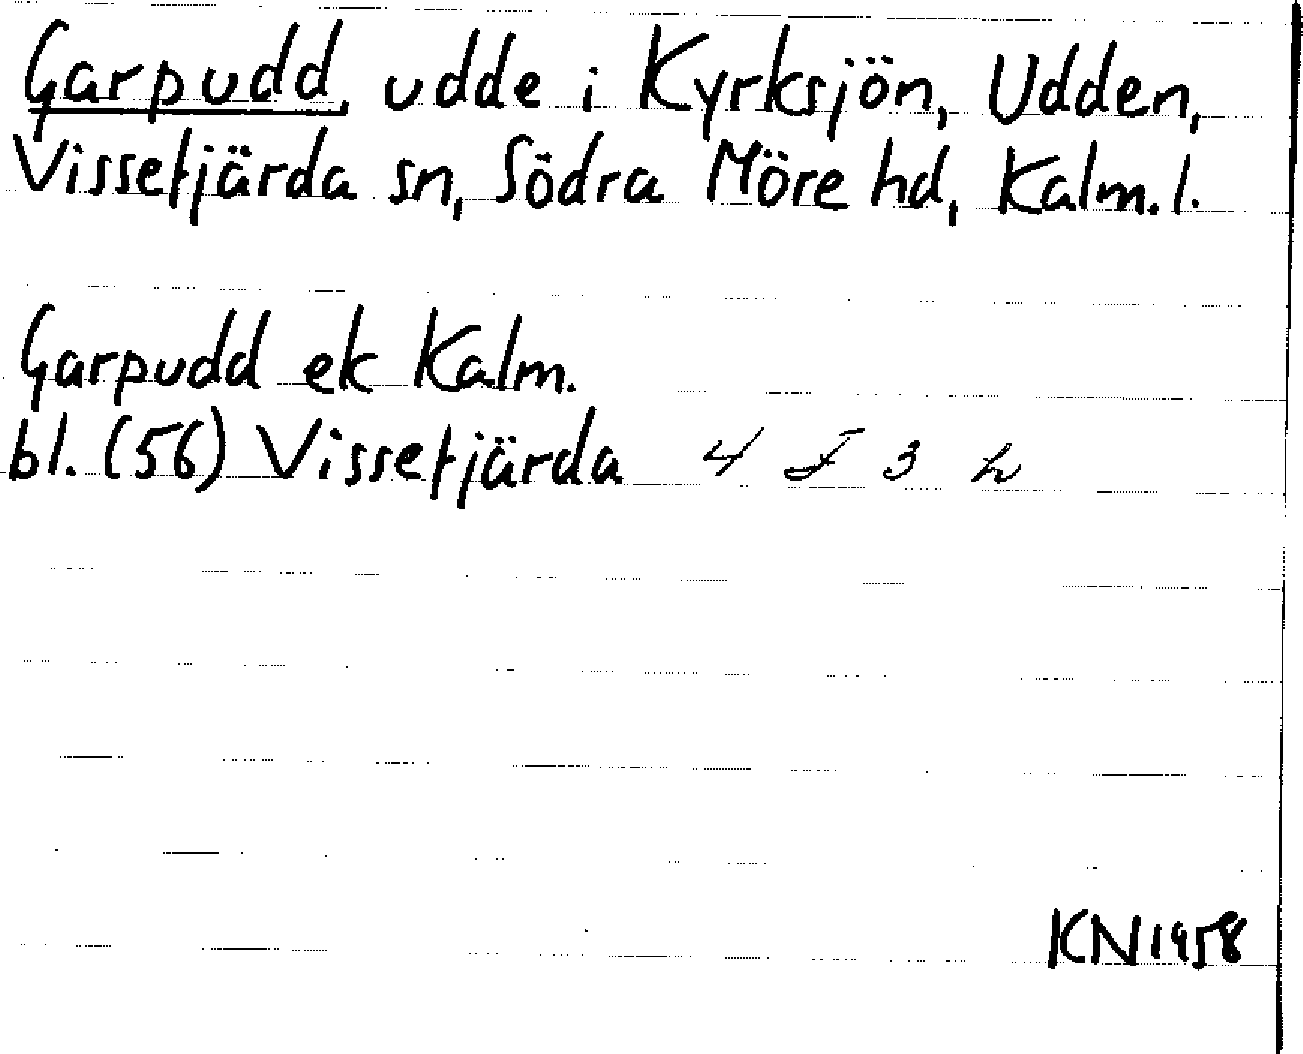 Garpudd, udde i Kyrksjön, Udden,
Vissefjärda sn, Södra Möre hd, Kalm. l.
Garpudd ek Kalm.
bl. (56) Vissefjärda 4 F 3 h
KN 1958